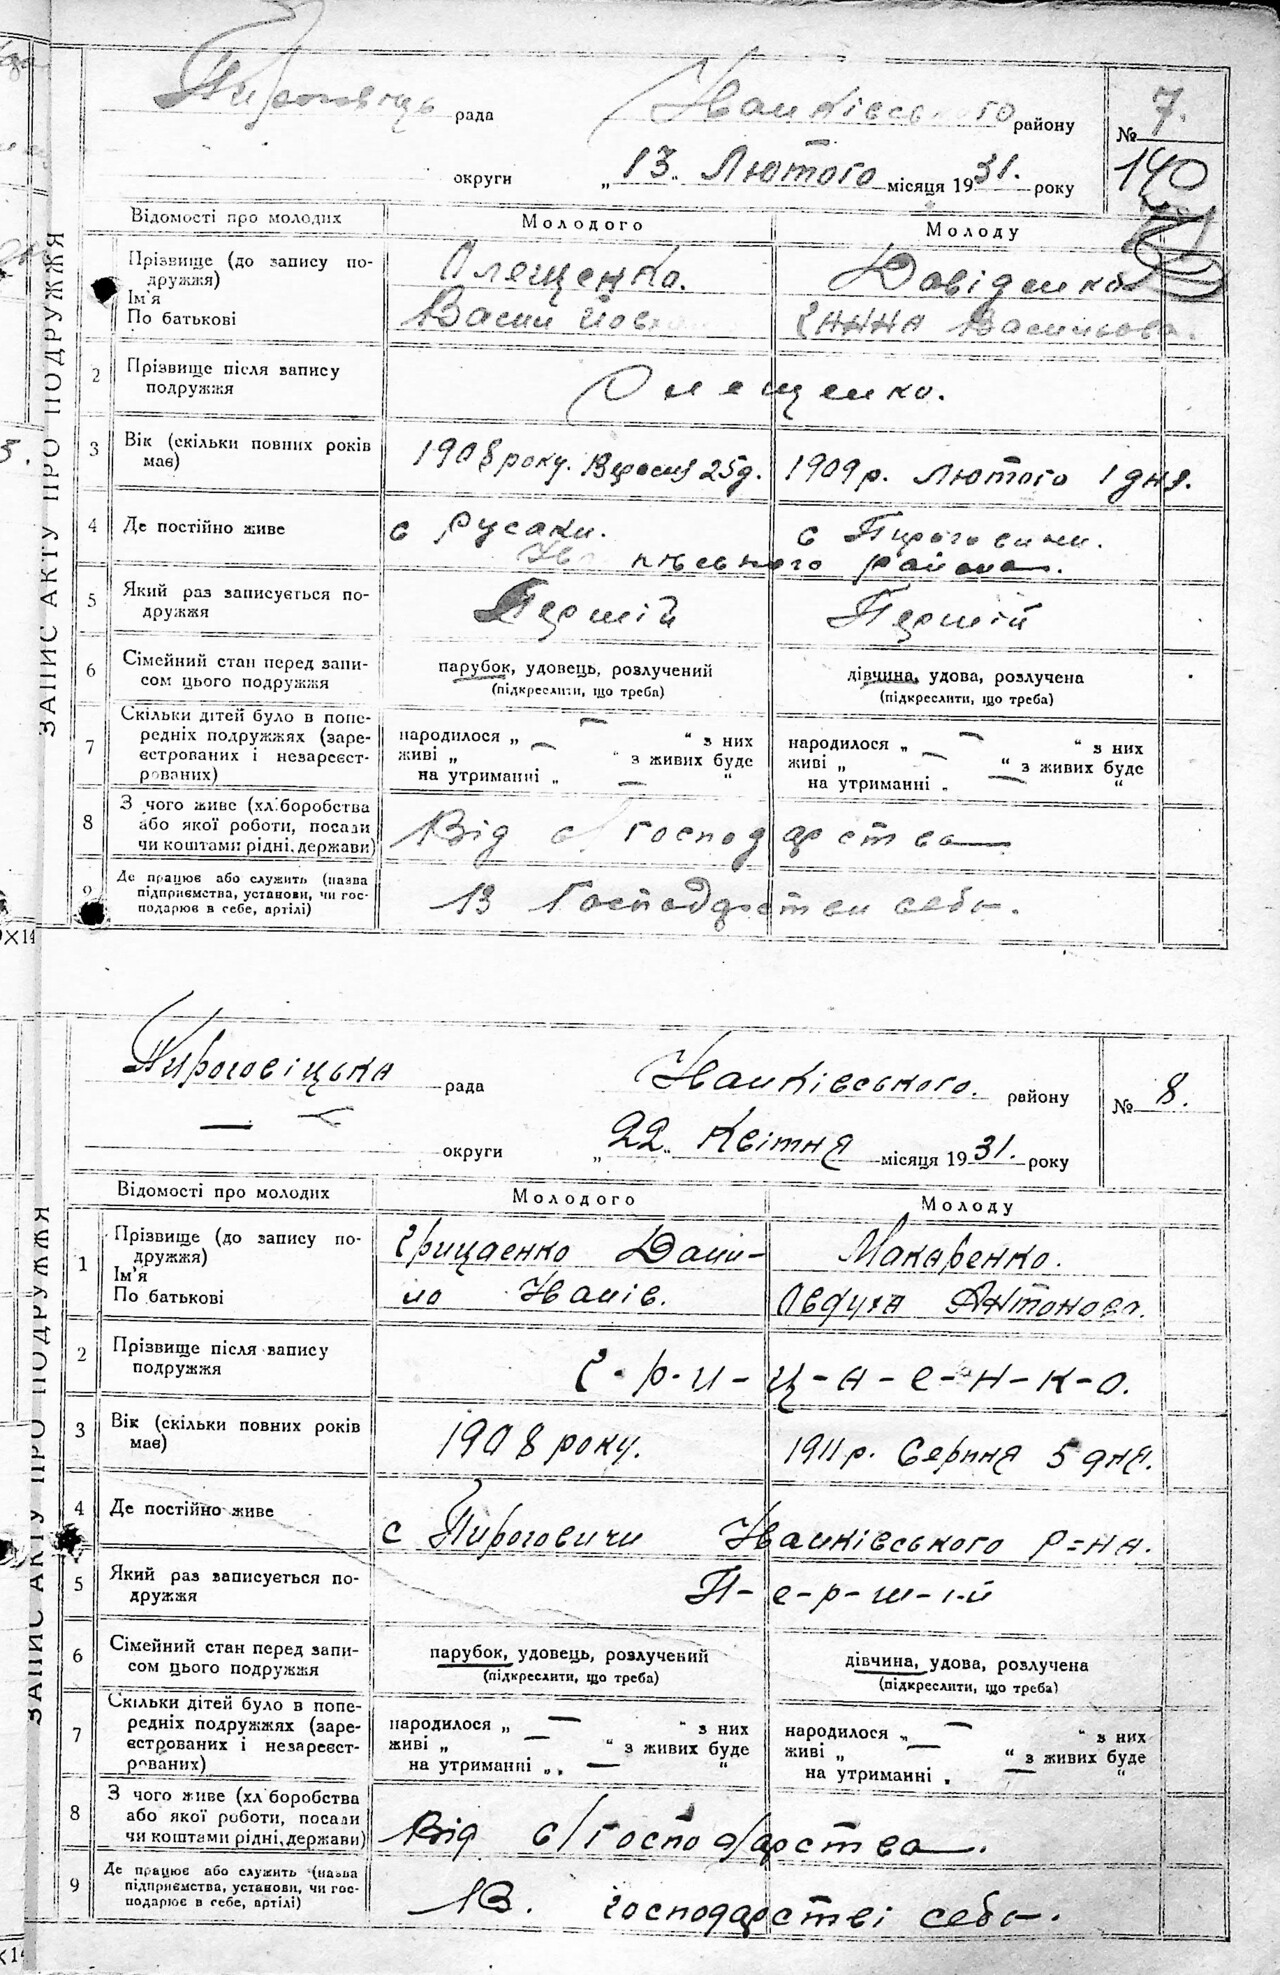 рада Іванківського району № 7.
округи „13" Лютого місяця 1931. року 140
ЗАПИС АКТУ ПРО ПОДРУЖЖЯ
Відомості про молодих Молодого Молоду
Прізвище (до запису по-
дружжя) Олещенко. Давіденко
Ім'я
По батькові Васил Ганна Васильова.
2 Прізвище після запису
подружжя Олещенко.
3 Вік (скільки повних років
має) 1908 року. Вересня 25 д. 1909 р. Лютого 1 дня.
4 Де постійно живе с Русаки. с Пироговичи.
района.
5 Який раз записується по-
дружжя Першій Першій
6 Сімейний стан перед запи-
сом цього подружжя парубок, удовець, розлучений дівчина, удова, розлучена
(підкреслити, що треба) (підкреслити, що треба)
7 Скільки дітей було в попе-
редніх подружжях (заре-
єстрованих і незареєст-
рованих) народилося „ — " з них народилося „ — " з них
живі „ — " з живих буде живі „ — " з живих буде
на утриманні „ — " на утриманні „ — "
8 З чого живе (хліборобства
або якої роботи, посади
чи коштами рідні, держави) Від с/господарства
9 Де працює або служить (назва
підприємства, установи, чи гос-
подарює в себе, артілі) В Господарстви себе.
Пироговіцька рада Іванківського. району № 8.
— округи „22" Квітня місяця 1931. року
ЗАПИС АКТУ ПРО ПОДРУЖЖЯ
Відомості про молодих Молодого Молоду
1 Прізвище (до запису по-
дружжя) Грицаенко Дани- Макаренко.
Ім'я
По батькові ло Іванів. Овдуха Антонова.
2 Прізвище після запису
подружжя Г-р-и-ц-а-е-н-к-о.
3 Вік (скільки повних років
має) 1908 року. 1911 р. Серпня 5 дня.
4 Де постійно живе с Пироговичи Іванківського р=на.
5 Який раз записується по-
дружжя П-е-р-ш-і-й
6 Сімейний стан перед запи-
сом цього подружжя парубок, удовець, розлучений дівчина, удова, розлучена
(підкреслити, що треба) (підкреслити, що треба)
7 Скільки дітей було в попе-
редніх подружжях (заре-
єстрованих і незареєст-
рованих) народилося „ — " з них народилося „ — " з них
живі „ — " з живих буде живі „ — " з живих буде
на утриманні „ — " на утриманні „ — "
8 З чого живе (хліборобства
або якої роботи, посади
чи коштами рідні, держави) Від с/господарства.
9 Де працює або служить (назва
підприємства, установи, чи гос-
подарює в себе, артілі) В. господарстві себе.